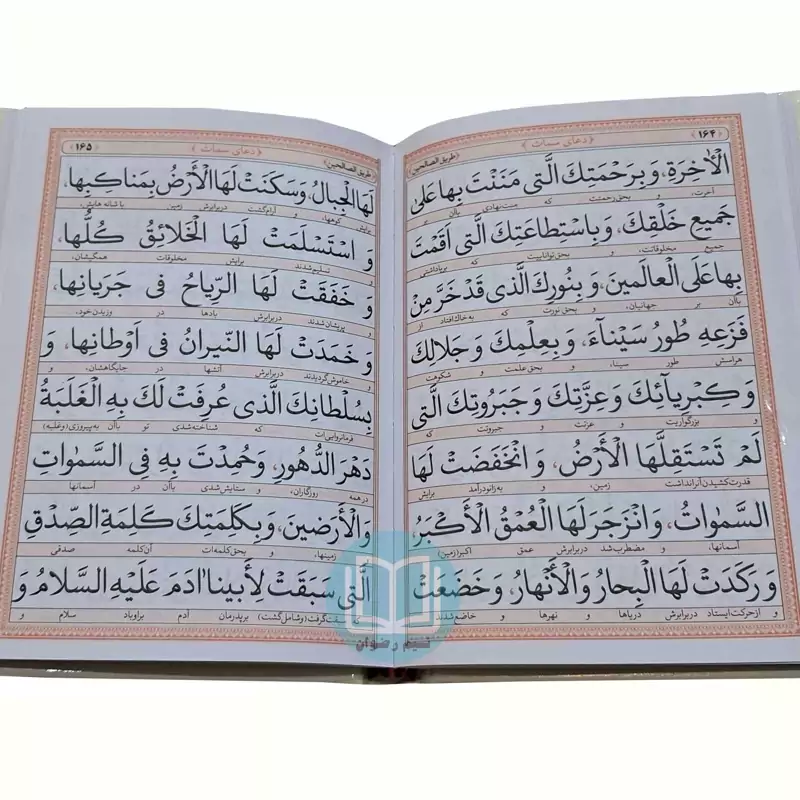 ﴿۱۶۴﴾ ﴿دعای سمات﴾ ﴿طریق الصالحین﴾
الْاٰخِرَةِ، وَ بِرَحْمَتِكَ الَّتى مَنَنْتَ بِها عَلىٰ
آخرت، و بحق رحمتت که منت نهادی بآن بر
جَميعِ خَلْقِكَ، وَ بِاسْتِطاعَتِكَ الَّتى اَقَمْتَ
جمیع مخلوقاتت، و بحق توانائیت که برپاداشتی
بِها عَلَى الْعالَمينَ، وَ بِنُورِكَ الَّذى قَدْ خَرَّ مِنْ
بآن بر جهانیان، و بحق نورت که به خاک افتاد از
فَزَعِهِ طُورُ سَيْنآءَ، وَ بِعِلْمِكَ وَ جَلالِكَ
هراسش طور سینا، و بحق علمت و شکوهت
وَ كِبْرِيآئِكَ وَ عِزَّتِكَ وَ جَبَرُوتِكَ الَّتى
و بزرگواریت و عزتت و جبروتت که
لَمْ تَسْتَقِلَّهَا الْاَرْضُ، وَ انْخَفَضَتْ لَهَا
قدرت کشیدن آنرا نداشت زمین، و به زانو درآمد برایش
السَّمٰواتُ، وَ انْزَجَرَ لَهَا الْعُمْقُ الْاَكْبَرُ،
آسمانها، و مضطرب شد در برابرش عمق اکبر(زمین)
وَ رَكَدَتْ لَهَا الْبِحارُ وَ الْاَنْهارُ، وَ خَضَعَتْ
و از حرکت ایستاد در برابرش دریاها و نهرها و خاضع شدند
﴿طریق الصالحین﴾ ﴿دعای سمات﴾ ﴿۱۶۵﴾
لَهَا الْجِبالُ، وَ سَكَنَتْ لَهَا الْاَرْضُ بِمَناكِبِها،
برایش کوهها، و آرام گشت در برابرش زمین با شانه هایش،
وَ اسْتَسْلَمَتْ لَهَا الْخَلائِقُ كُلُّها،
و تسلیم شدند برایش مخلوقات همگیشان،
وَ خَفَقَتْ لَهَا الرِّياحُ فى جَرَيانِها،
و پریشان شدند در برابرش بادها در وزیدن خود،
وَ خَمَدَتْ لَهَا النّيرانُ فى اَوْطانِها، وَ
و خاموش گردیدند در برابرش آتشها در جایگاهشان، و
بِسُلْطانِكَ الَّذى عُرِفَتْ لَكَ بِهِ الْغَلَبَةُ
فرمانروایی‌ات که شناخته شدی تو بآن به پیروزی(و غلبه)
دَهْرَ الدُّهُورِ، وَ حُمِدْتَ بِهِ فِى السَّمٰواتِ
در همه روزگاران، و ستایش شدی بآن در آسمانها
وَ الْاَرَضينَ، وَ بِكَلِمَتِكَ كَلِمَةِ الصِّدْقِ
و زمینها، و بحق کلمه‌ات آن کلمه صدقی
الَّتى سَبَقَتْ لِاَبينا اٰدَمَ عَلَيْهِ السَّلامُ وَ
که سبقت گرفت(و شامل گشت) بر پدرمان آدم بر او باد سلام و
نسیم رضوان